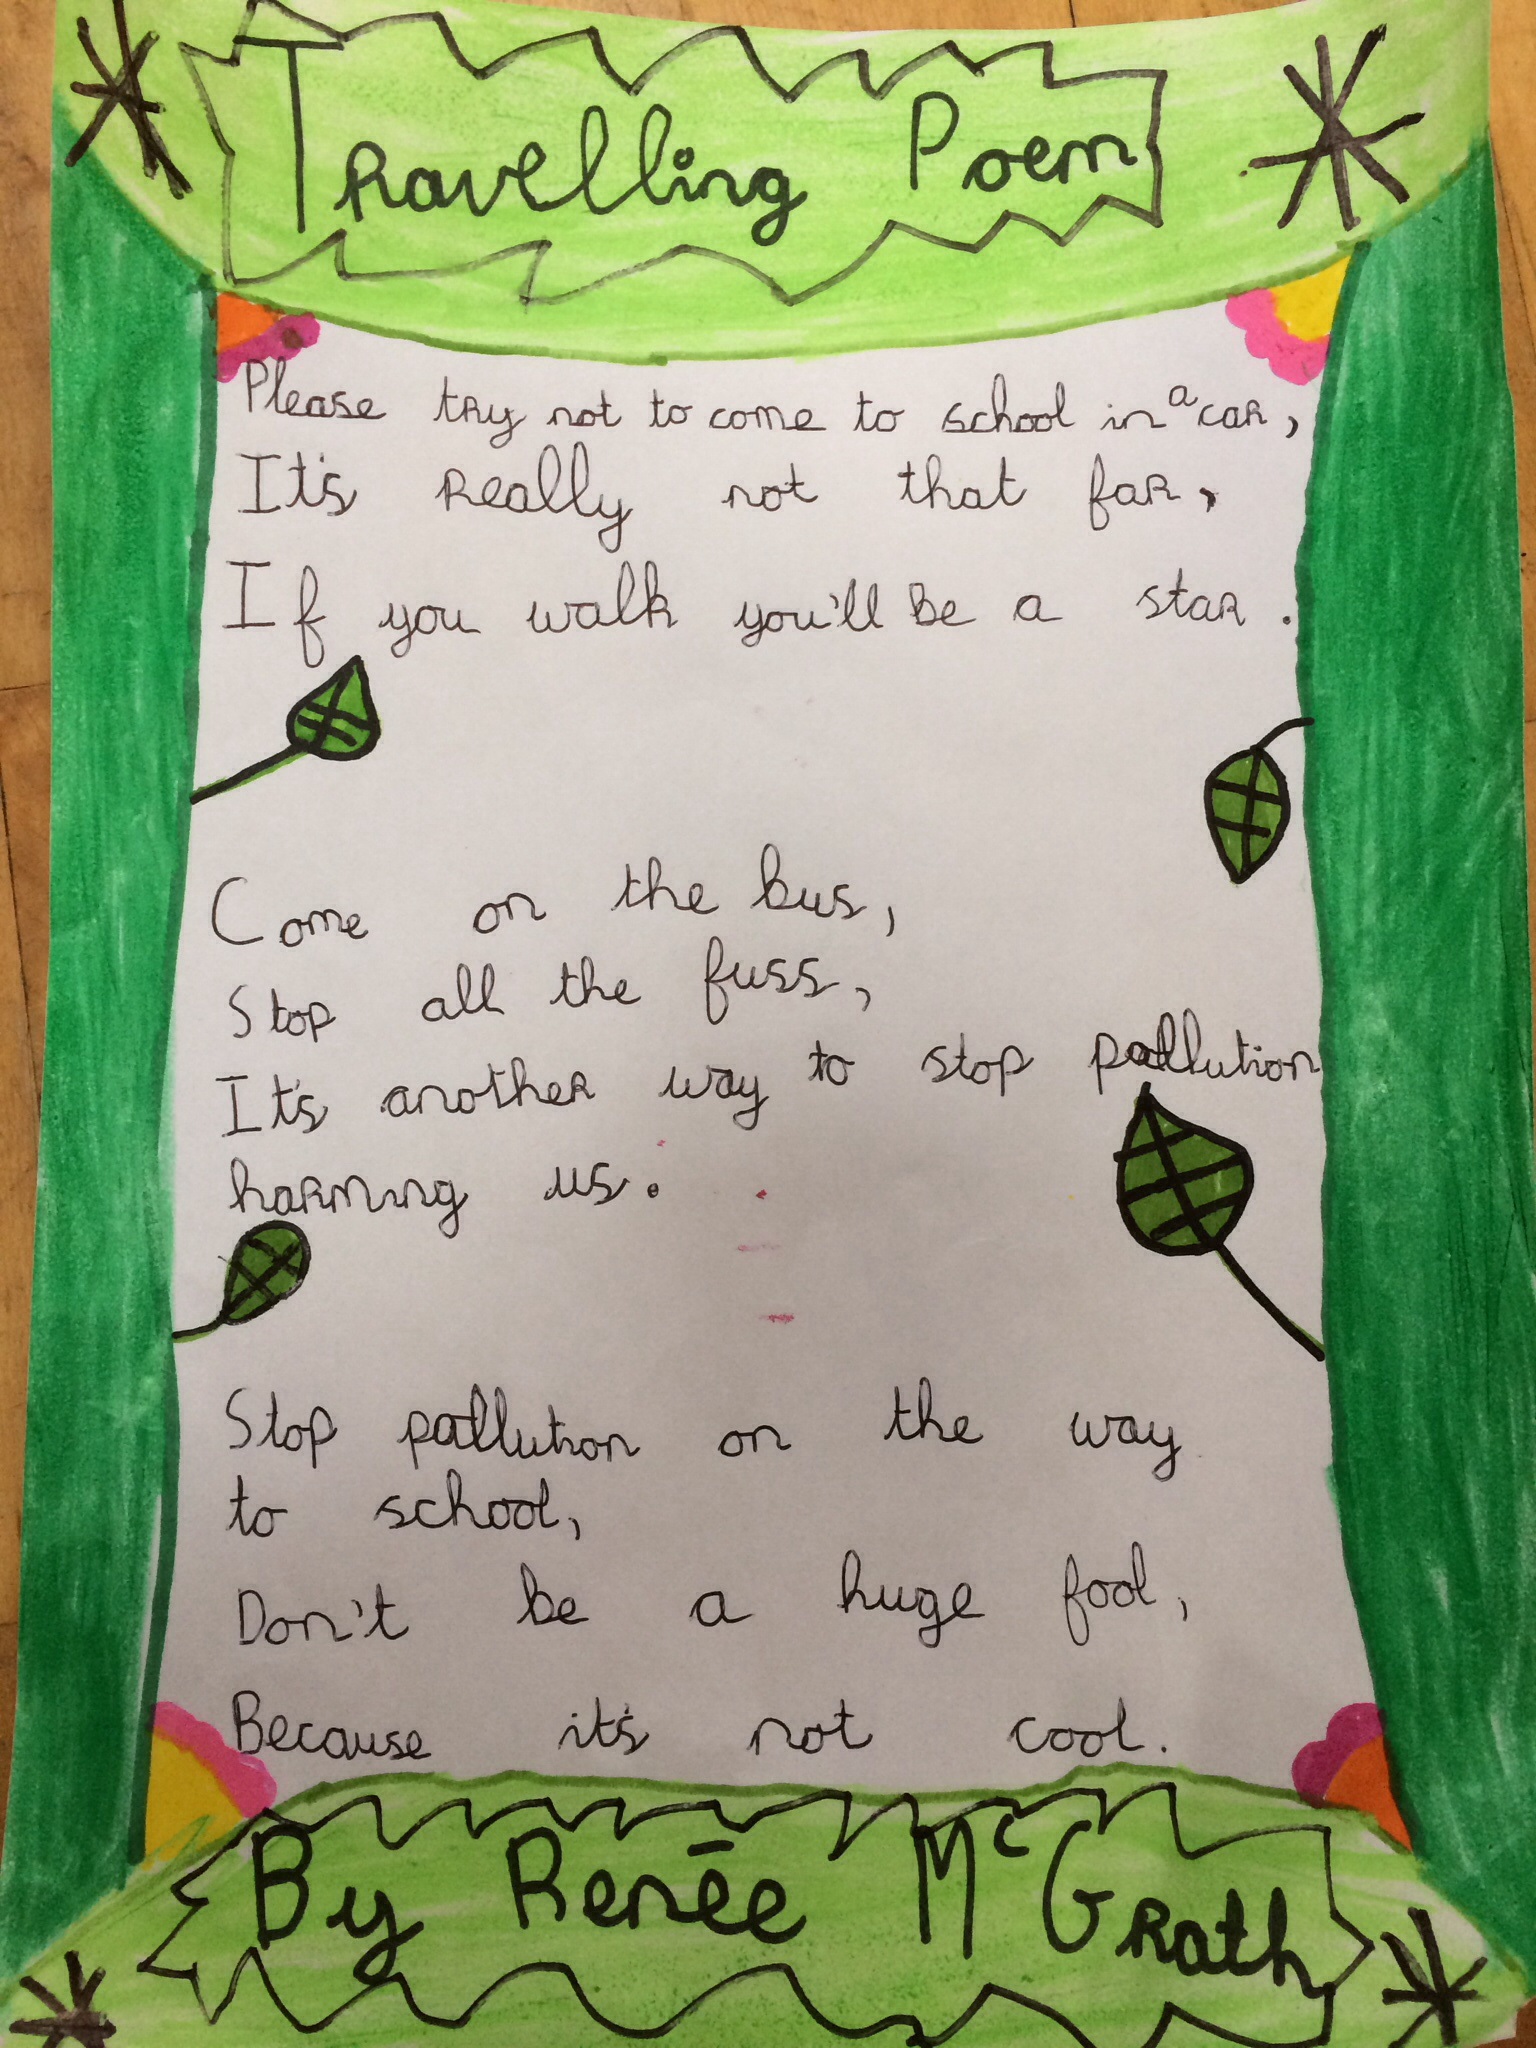 Travelling Poem
Please try not to come to school in a car,
It's really not that far,
If you walk you'll Be a star.
Come on the bus,
Stop all the fuss,
It's another way to stop pollution
harming us.
Stop pollution on the way
to school,
Don't be a huge fool,
Because it's not cool.
By Renée McGrath